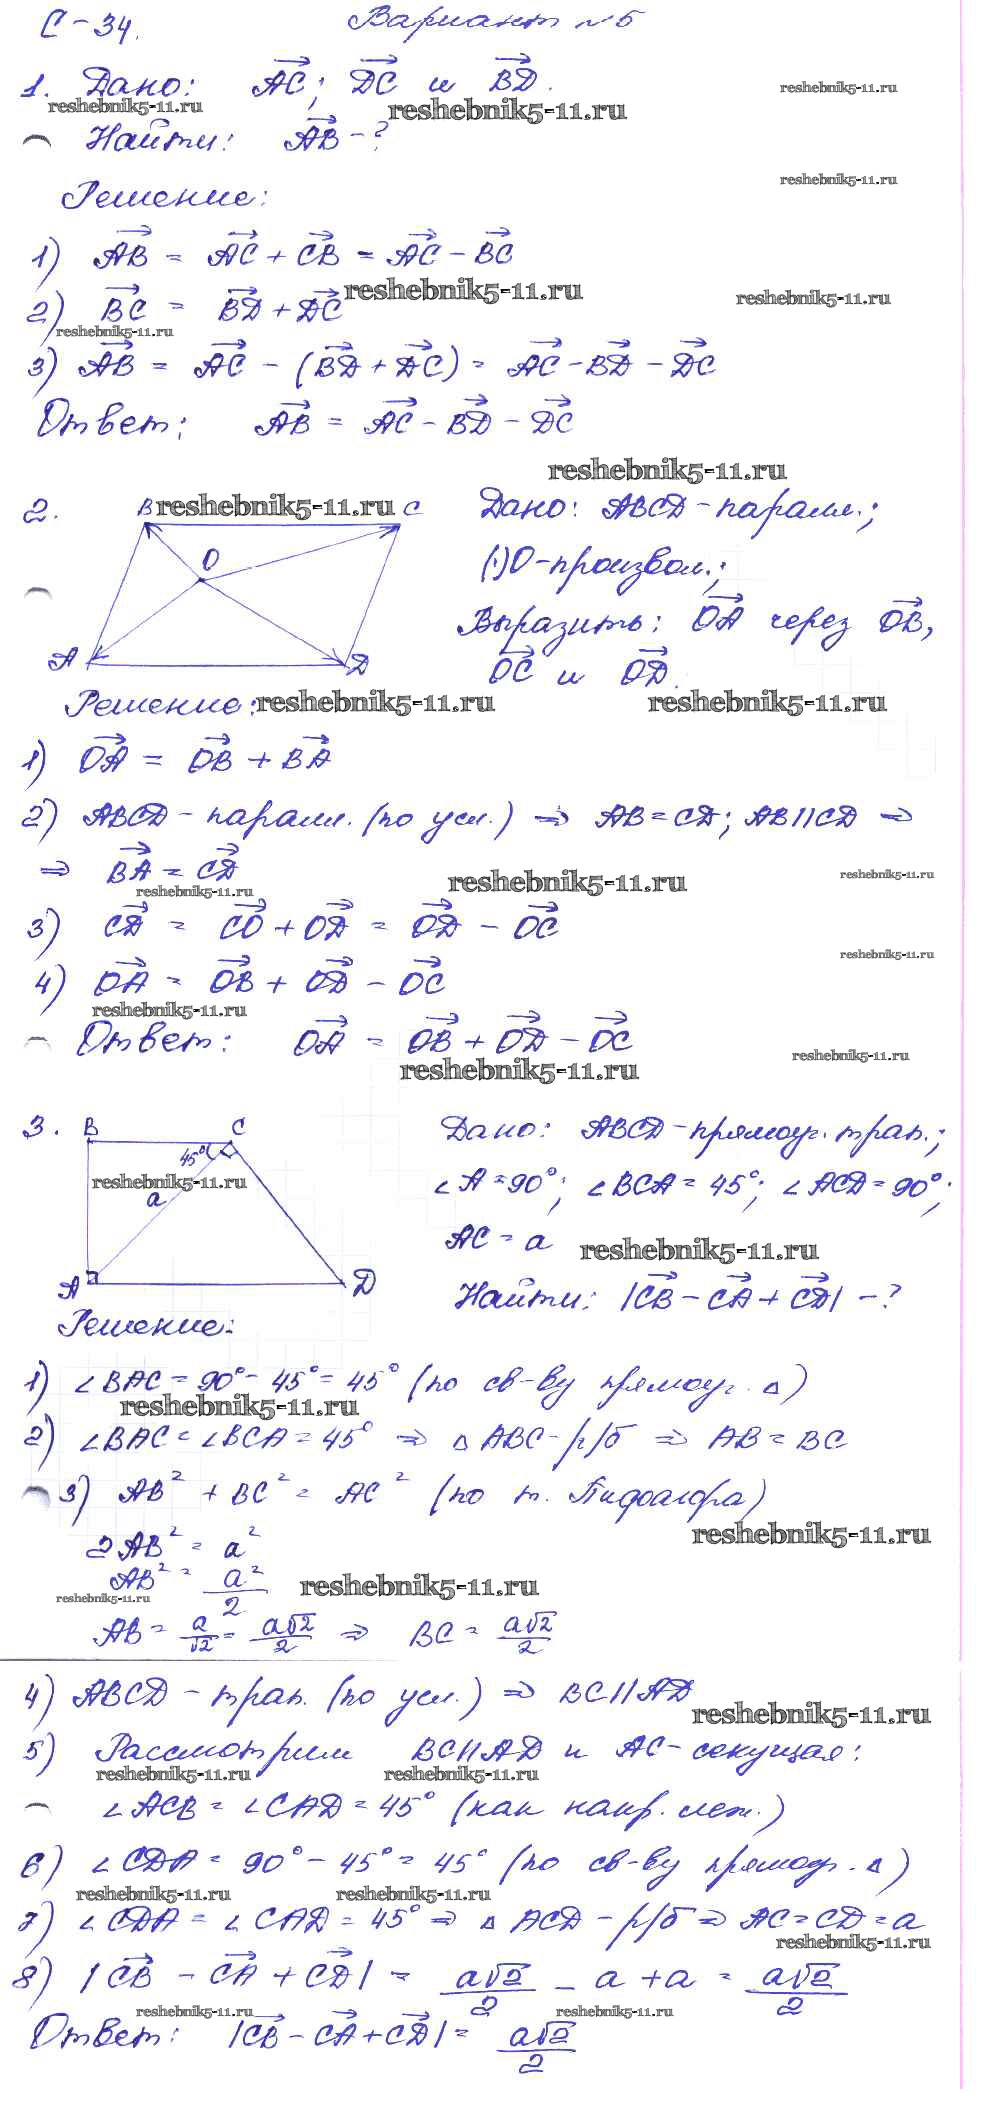 С-34. Вариант №5
1. Дано: AC; DC и BD.
reshebnik5-11.ru reshebnik5-11.ru reshebnik5-11.ru
Найти: AB - ?
reshebnik5-11.ru
Решение:
1) AB = AC + CB = AC - BC
reshebnik5-11.ru reshebnik5-11.ru
2) BC = BD + DC
reshebnik5-11.ru
3) AB = AC - (BD + DC) = AC - BD - DC
Ответ: AB = AC - BD - DC
reshebnik5-11.ru
2. B reshebnik5-11.ru C Дано: ABCD - паралл.;
O (·)O - произвол.;
Выразить: OA через OB,
A D OC и OD.
Решение: reshebnik5-11.ru reshebnik5-11.ru
1) OA = OB + BA
2) ABCD - паралл. (по усл.) ⇒ AB = CD; AB || CD ⇒
⇒ BA = CD
reshebnik5-11.ru reshebnik5-11.ru reshebnik5-11.ru
3) CD = CO + OD = OD - OC
reshebnik5-11.ru
4) OA = OB + OD - OC
reshebnik5-11.ru
Ответ: OA = OB + OD - OC
reshebnik5-11.ru reshebnik5-11.ru
3. B C Дано: ABCD - прямоуг. трап.;
45°
reshebnik5-11.ru ∠A = 90°; ∠BCA = 45°; ∠ACD = 90°;
a
AC = a reshebnik5-11.ru
A D Найти: |CB - CA + CD| - ?
Решение:
1) ∠BAC = 90° - 45° = 45° (по св-ву прямоуг. △)
reshebnik5-11.ru
2) ∠BAC = ∠BCA = 45° ⇒ △ABC - р/б ⇒ AB = BC
3) AB² + BC² = AC² (по т. Пифагора)
reshebnik5-11.ru
2AB² = a²
AB² = a²/2
reshebnik5-11.ru reshebnik5-11.ru
AB = a/√2 = a√2/2 ⇒ BC = a√2/2
4) ABCD - трап. (по усл.) ⇒ BC || AD
reshebnik5-11.ru
5) Рассмотрим BC || AD и AC - секущая:
reshebnik5-11.ru reshebnik5-11.ru
∠ACB = ∠CAD = 45° (как накр. леж.)
6) ∠CDA = 90° - 45° = 45° (по св-ву прямоуг. △)
reshebnik5-11.ru reshebnik5-11.ru
7) ∠CDA = ∠CAD = 45° ⇒ △ACD - р/б ⇒ AC = CD = a
reshebnik5-11.ru
8) |CB - CA + CD| = a√2/2 - a + a = a√2/2
reshebnik5-11.ru reshebnik5-11.ru
Ответ: |CB - CA + CD| = a√2/2